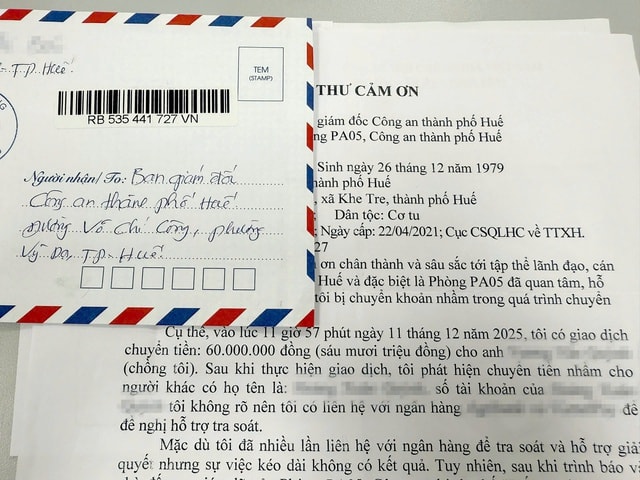 T.P. Huế.
TEM
(STAMP)
RB 535 441 727 VN
Người nhận/ To: Ban giám đốc
Công an thành phố Huế
đường Võ Chí Công, phường
Vỹ Dạ, T.P. Huế.
THƯ CẢM ƠN
giám đốc Công an thành phố Huế
PA05, Công an thành phố Huế
Sinh ngày 26 tháng 12 năm 1979
thành phố Huế
, xã Khe Tre, thành phố Huế
; Dân tộc: Cơ tu
; Ngày cấp: 22/04/2021; Cục CSQLHC về TTXH.
27
ơn chân thành và sâu sắc tới tập thể lãnh đạo, cán
Huế và đặc biệt là Phòng PA05 đã quan tâm, hỗ
tôi bị chuyển khoản nhầm trong quá trình chuyển
Cụ thể, vào lúc 11 giờ 57 phút ngày 11 tháng 12 năm 2025, tôi có giao dịch
chuyển tiền: 60.000.000 đồng (sáu mươi triệu đồng) cho anh
(chồng tôi). Sau khi thực hiện giao dịch, tôi phát hiện chuyển tiền nhầm cho
người khác có họ tên là: số tài khoản của
tôi không rõ nên tôi có liên hệ với ngân hàng để
đề nghị hỗ trợ tra soát.
Mặc dù tôi đã nhiều lần liên hệ với ngân hàng để tra soát và hỗ trợ giải
quyết nhưng sự việc kéo dài không có kết quả. Tuy nhiên, sau khi trình báo và